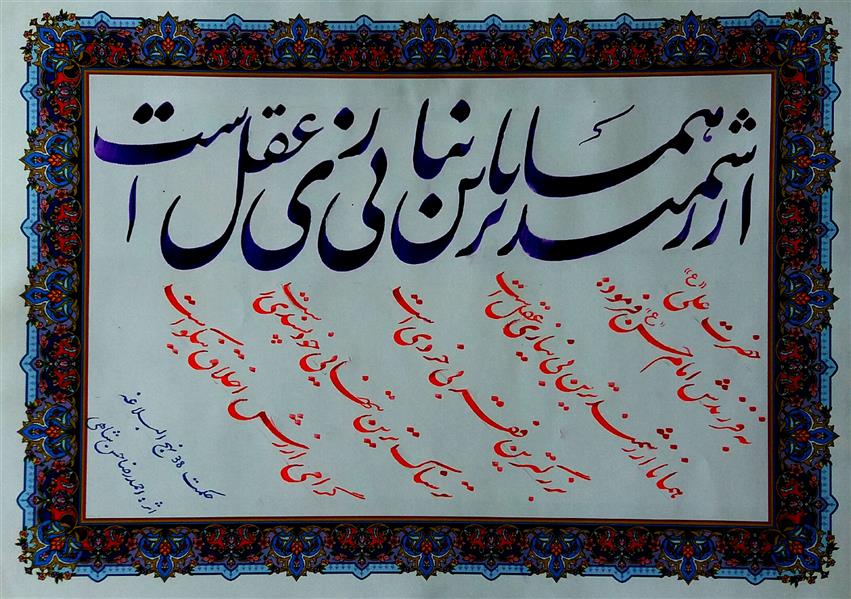 همانا ارزشمندترین بی نیازی عقل است
حضرت علی (ع)
به فرزندش امام حسن (ع) فرموده:
همانا ارزشمندترین بی نیازی عقل است
بزرگترین فقر بی خردی است
ترسناک ترین تنهایی خودپسندی است
گرامی ارزش اخلاق نیکو است
حکمت 38 نهج البلاغه
اثر: احمدرضا حسن شاهی